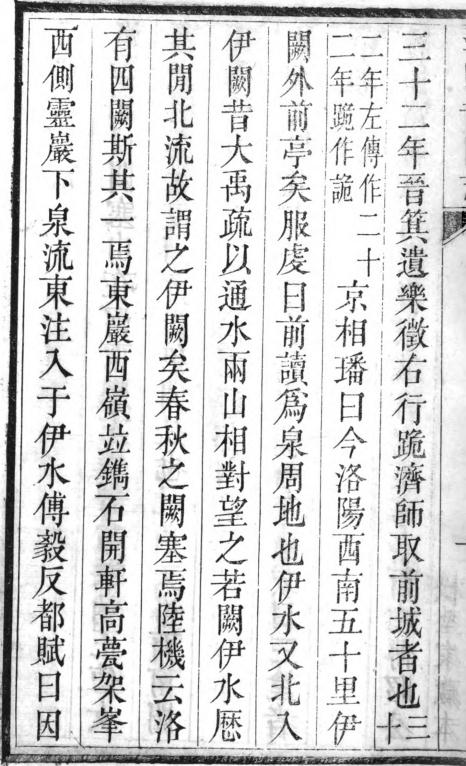 三十二年晉箕遺樂徵右行跪濟師取前城者也三十
二年左傳作二十二年跪作詭京相璠曰今洛陽西南五十里伊
闕外前亭矣服虔曰前讀爲泉周地也伊水又北入
伊闕昔大禹疏以通水兩山相對望之若闕伊水歴
其閒北流故謂之伊闕矣春秋之闕塞焉陸機云洛
有四闕斯其一焉東巖西嶺竝鐫石開軒高甍架峯
西側靈巖下泉流東注入于伊水傅毅反都賦曰因